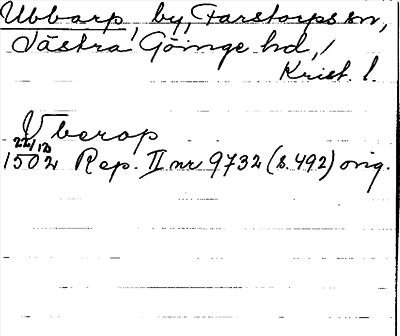 Ubbarp, by, Farstorps sn,
Västra Göinge hd,
Krist. l.
Vberop
22/12
1502 Rep. II nr 9732 (s. 492) orig.